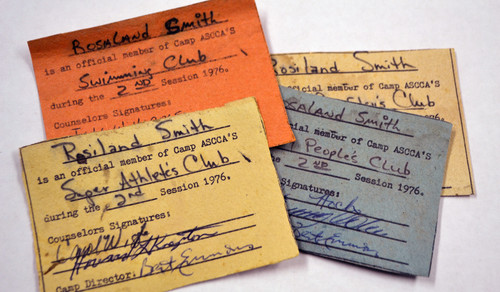 ROSALAND Smith
is an official member of Camp ASCCA'S
Swimming Club
during the 2ND Session 1976.
Counselors Signatures:
Rosiland Smith
an official member of Camp ASCCA'S
Club
Session 1976.
Rosiland Smith
is an official member of Camp ASCCA'S
Super Athlete's Club
during the 2nd Session 1976.
Counselors Signatures:
Camp Director: Bart Emmons
ROSALAND Smith
official member of Camp ASCCA'S
People's Club
2ND Session 1976.
Signatures: